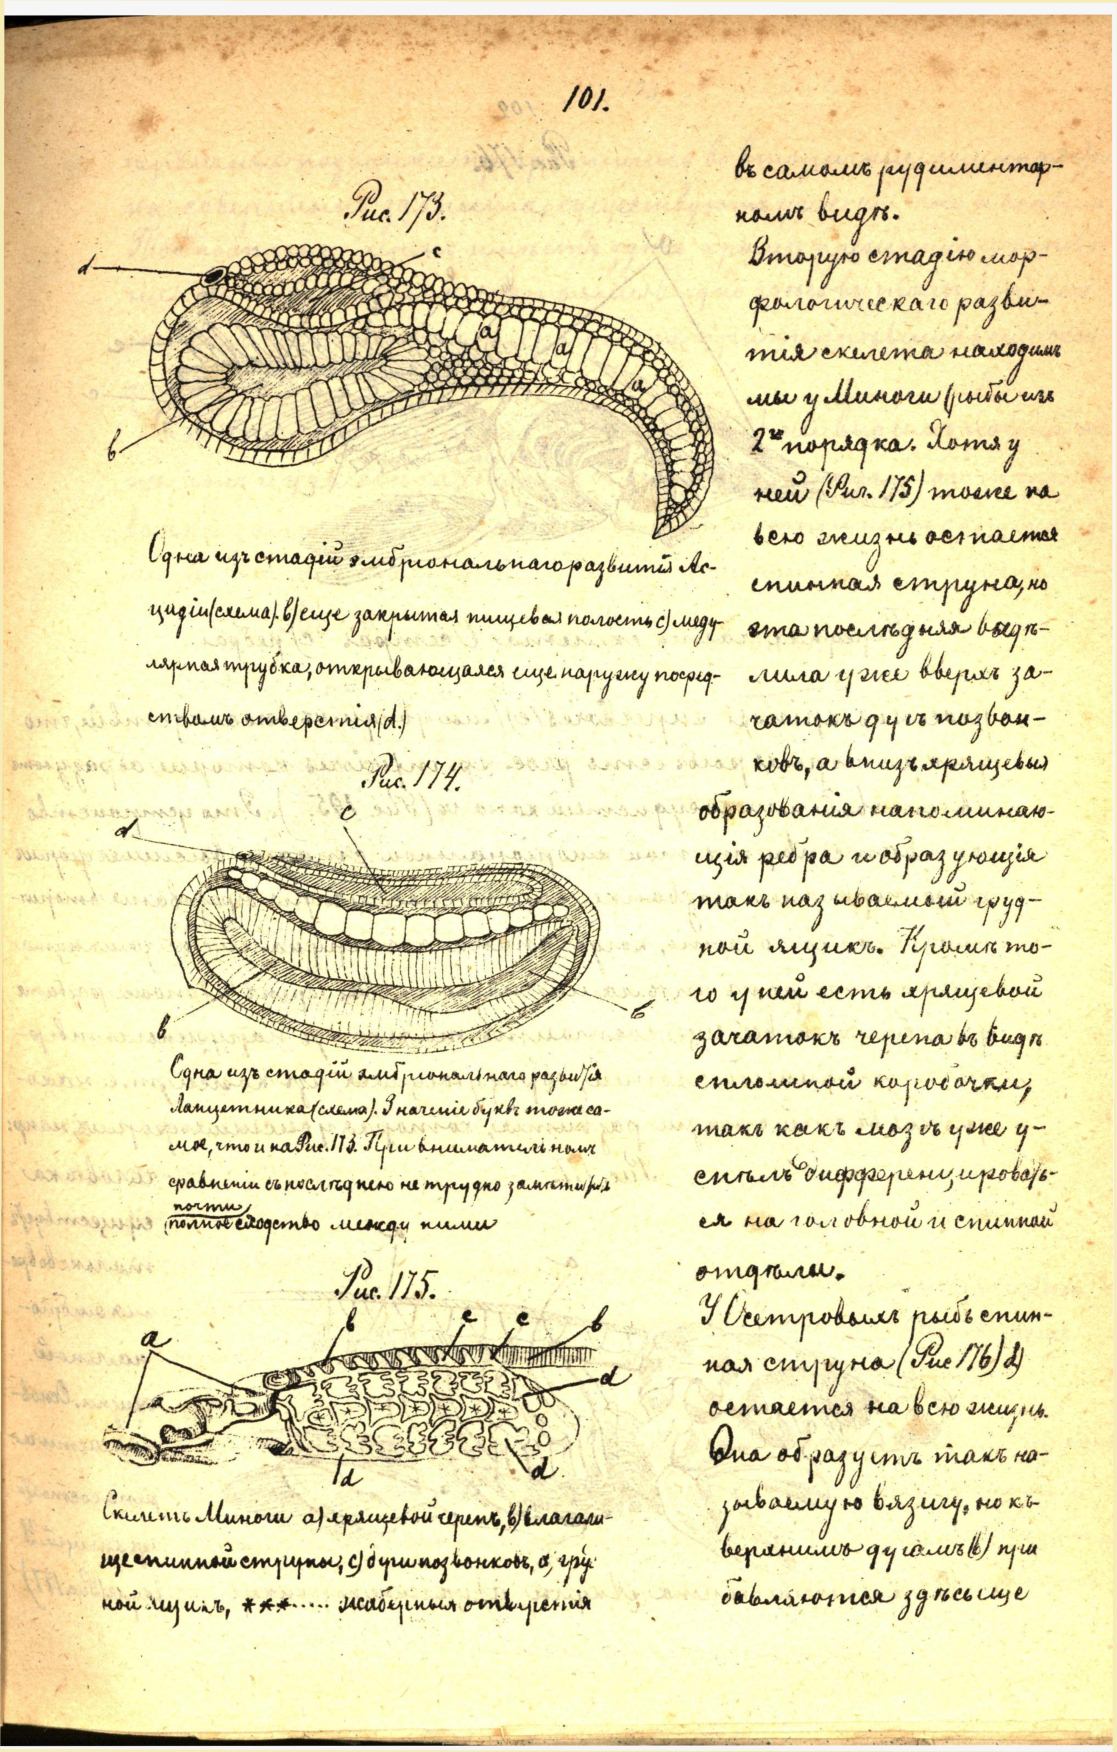 101.
Рис. 173.
d
c
a
a
a
b
Одна изъ стадій эмбріональнаго развитія Ас-
цидіи (схема). b) еще закрытая пищевая полость c) меду-
лярная трубка, открывающаяся еще наружу посред-
ствомъ отверстія (d.)
Рис. 174.
c
d
b
b
Одна изъ стадій эмбріональнаго развитія
Ланцетника (схема). Значеніе буквъ тоже са-
мое, что и на Рис. 173. При внимательномъ
сравненіи съ послѣднею не трудно замѣтить
почти
полное сходство между ними
Рис. 175.
a
b
c
c
b
d
d
d
Скелетъ Миноги a) хрящевой черепъ, b) влагали-
ще спинной струны, c) дуги позвонковъ, d, груд-
ной ящикъ, ***..... жаберныя отверстія
въ самомъ рудиментар-
номъ видѣ.
Вторую стадію мор-
фологическаго разви-
тія скелета находимъ
мы у Миноги (рыбы изъ
2го порядка. Хотя у
ней (Рис. 175) тоже на
всю жизнь остается
спинная струна, но
эта послѣдняя выдѣ-
лила уже вверхъ за-
чатокъ дугъ позвон-
ковъ, а внизъ хрящевыя
образованія напоминаю-
щія ребра и образующія
такъ называемый груд-
ной ящикъ. Кромѣ то-
го у ней есть хрящевой
зачатокъ черепа въ видѣ
сплошной коробочки,
такъ какъ мозгъ уже у-
спѣлъ дифференцировать-
ся на головной и спинной
отдѣлы.
У Осетровыхъ рыбъ спин-
ная струна (Рис 176) d)
остается на всю жизнь.
Она образуетъ такъ на-
зываемую вязигу, но къ
верхнимъ дугамъ (b) при
бавляются здѣсь еще